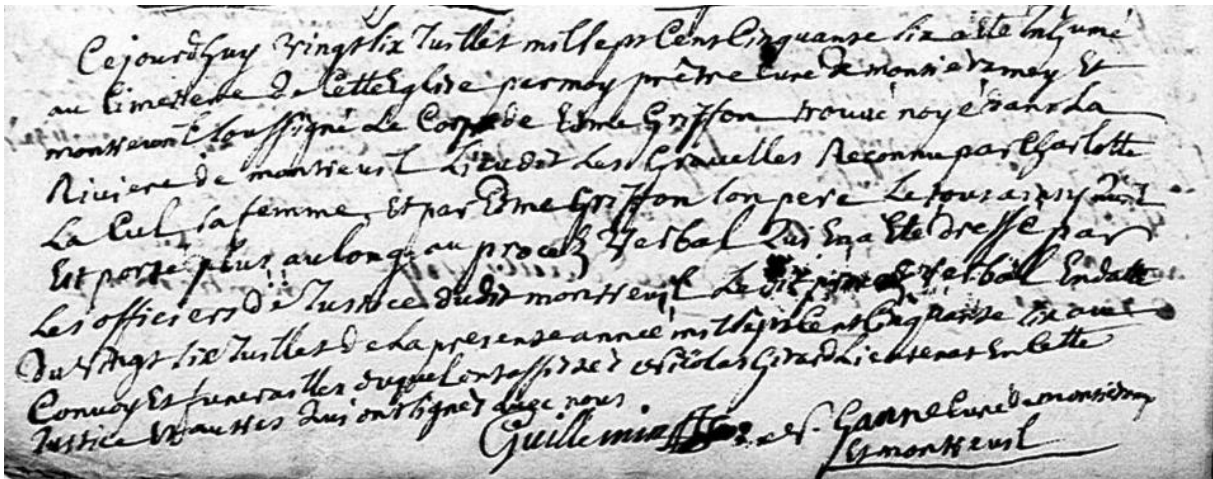 Cejourdhuy vingt six Juillet mil sept Cent Cinquante six a ete Inhumé
au Cimetiere de Cette Eglise par moy prêtre Curé de montieramey Et
montreuil soussigné Le Corps de Edme Griffon trouvé noyé dans La
Riviere de montreuil Lieu dit Les Gravelles Reconnu par Charlotte
La Cul, sa femme, et par Edme Griffon son pere Le tout ainsy qu'il
Est porté plus au long au procez Verbal qui En a Eté dressé par
Les officiers de Justice dudit montreuil Ledit Verbal En datte
Du vingt six Juillet de La presente année mil sept Cent Cinquante six aux
Convoy Et funerailles duquel ont assistez Nicolas Girard Lieutenant En Cette
Justice Et autres qui ont signez avec nous
Guillemin Ganne Curé de montieramey
Et montreuil